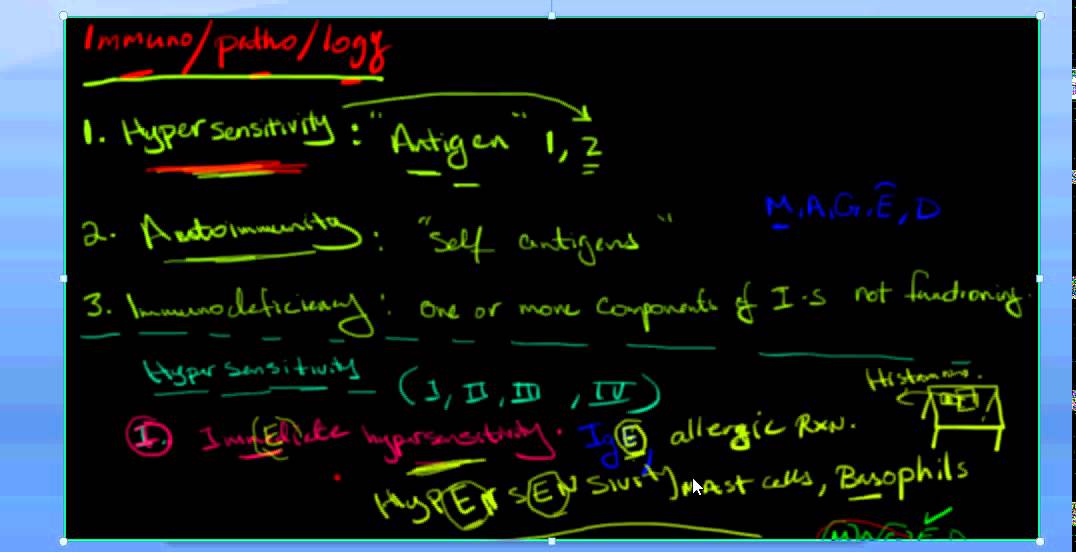 Immuno/patho/logy
1. Hypersensitivity : "Antigen" 1, 2
M, A, G, E, D
2. Autoimmunity : "self antigens"
3. Immunodeficiency : one or more components of I.S not functioning.
Hypersensitivity (I, II, III, IV)
Histamine.
I. Immediate hypersensitivity. IgE allergic Rxn.
HypErsENsivity mast cells, Basophils